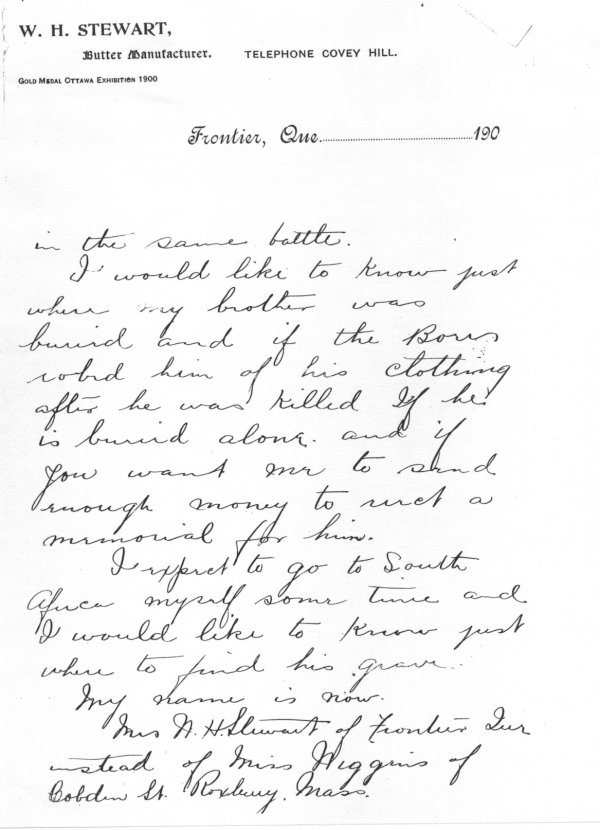 W. H. STEWART,
Butter Manufacturer. TELEPHONE COVEY HILL.
GOLD MEDAL OTTAWA EXHIBITION 1900
Frontier, Que. 190
in the same battle.
I would like to know just
where my brother was
buried and if the Bores
robed him of his clothing
after he was killed If he
is buried alone. and if
you want me to send
enough money to erect a
memorial for him.
I expect to go to South
Africa myself some time and
I would like to know just
where to find his grave.
My name is now.
Mrs W. H Stewart of Frontier Que
instead of Miss Wiggins of
Cobden St. Roxbury. Mass.